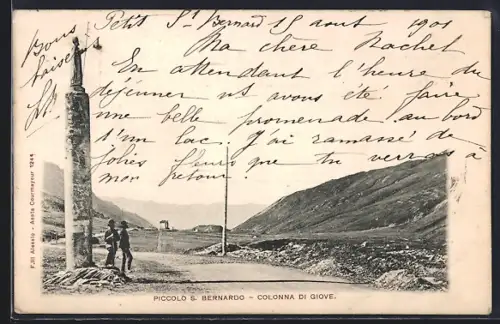 Petit St Bernard 15 aout 1901
Ma chère Rachel
En attendant l'heure du
déjeuner ns avons été faire
une belle promenade au bord
d'un lac. J'ai ramassé de
jolies fleurs que tu verras à
mon retour.
Bons
baisers
F.lli Alessio - Aosta Courmayeur 1244
PICCOLO S. BERNARDO - COLONNA DI GIOVE.